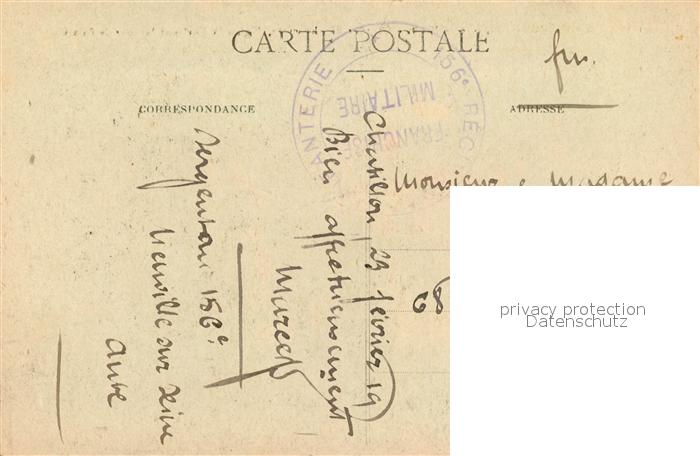 CARTE POSTALE
fm.
CORRESPONDANCE
ADRESSE
INFANTERIE
156e RÉG
FRANCHISE
MILITAIRE
Monsieur e Madame
68
Chatillon, 23 février 19
Bien affectueusement
Marcel
Sergent au 156e
sur Seine
Aube
privacy protection
Datenschutz